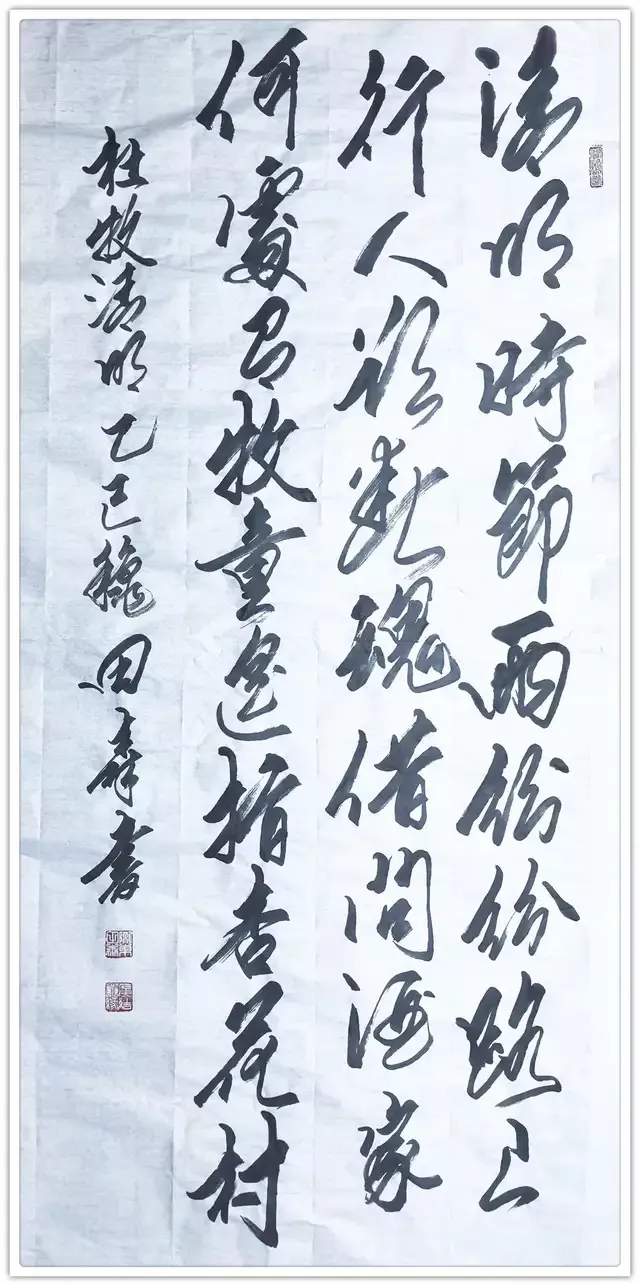 清明時節雨紛紛路上
行人欲斷魂借問酒家
何處有牧童遥指杏花村
杜牧清明乙巳穐田書